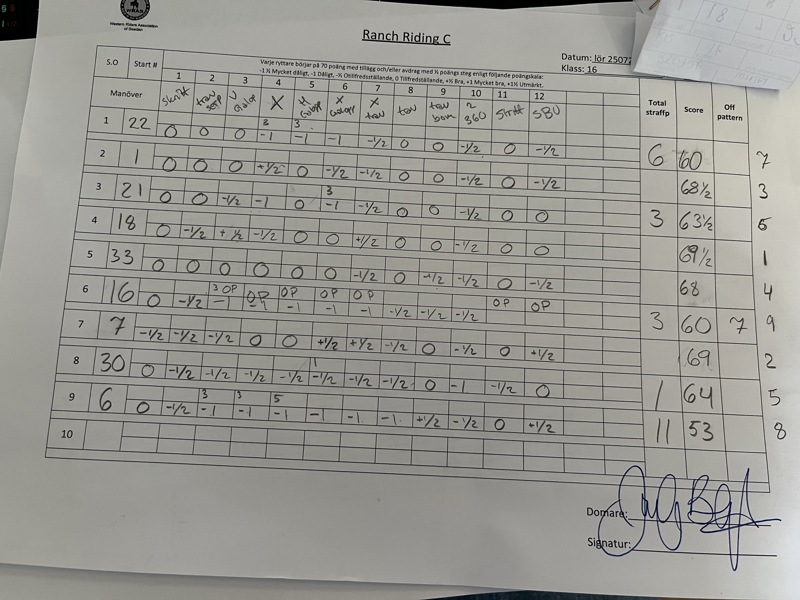 WRAS
Western Riders Association
of Sweden
Ranch Riding C
Datum: lör 25072
Klass: 16
Varje ryttare börjar på 70 poäng med tillägg och/eller avdrag med ½ poängs steg enligt följande poängskala:
-1 ½ Mycket dåligt, -1 Dåligt, -½ Otillfredsställande, 0 Tillfredsställande, +½ Bra, +1 Mycket bra, +1½ Utmärkt.
S.O Start # 1 2 3 4 5 6 7 8 9 10 11 12 Total straffp Score Off pattern
Manöver skritt trav serp V Galopp X H Galopp X Galopp X trav trav trav bom 2 360 skritt SBU
3 3
1 22 0 0 0 -1 -1 -1 -1/2 0 0 -1/2 0 -1/2 6 60 7
2 1 0 0 0 +1/2 0 -1/2 -1/2 0 0 -1/2 0 -1/2 68½ 3
3
3 21 0 0 -1/2 -1 0 -1 -1/2 0 0 -1/2 0 0 3 63½ 6
4 18 0 -1/2 +½ -1/2 0 0 +1/2 0 0 -1/2 0 0 69½ 1
5 33 0 0 0 0 0 0 -1/2 0 -1/2 -1/2 0 -1/2 68 4
3 OP OP OP OP OP OP OP
6 16 0 -1/2 -1 -1 -1 -1 -1 -1/2 -1/2 -1/2 3 60 7 9
7 7 -1/2 -1/2 -1/2 0 0 +1/2 +1/2 -1/2 0 -1/2 0 +1/2 69 2
1
8 30 0 -1/2 -1/2 -1/2 -1/2 -1/2 -1/2 -1/2 0 -1 -1/2 0 1 64 5
3 3 5
9 6 0 -1/2 -1 -1 -1 -1 -1 -1 +1/2 -1/2 0 +1/2 11 53 8
10
Domare:
Signatur: